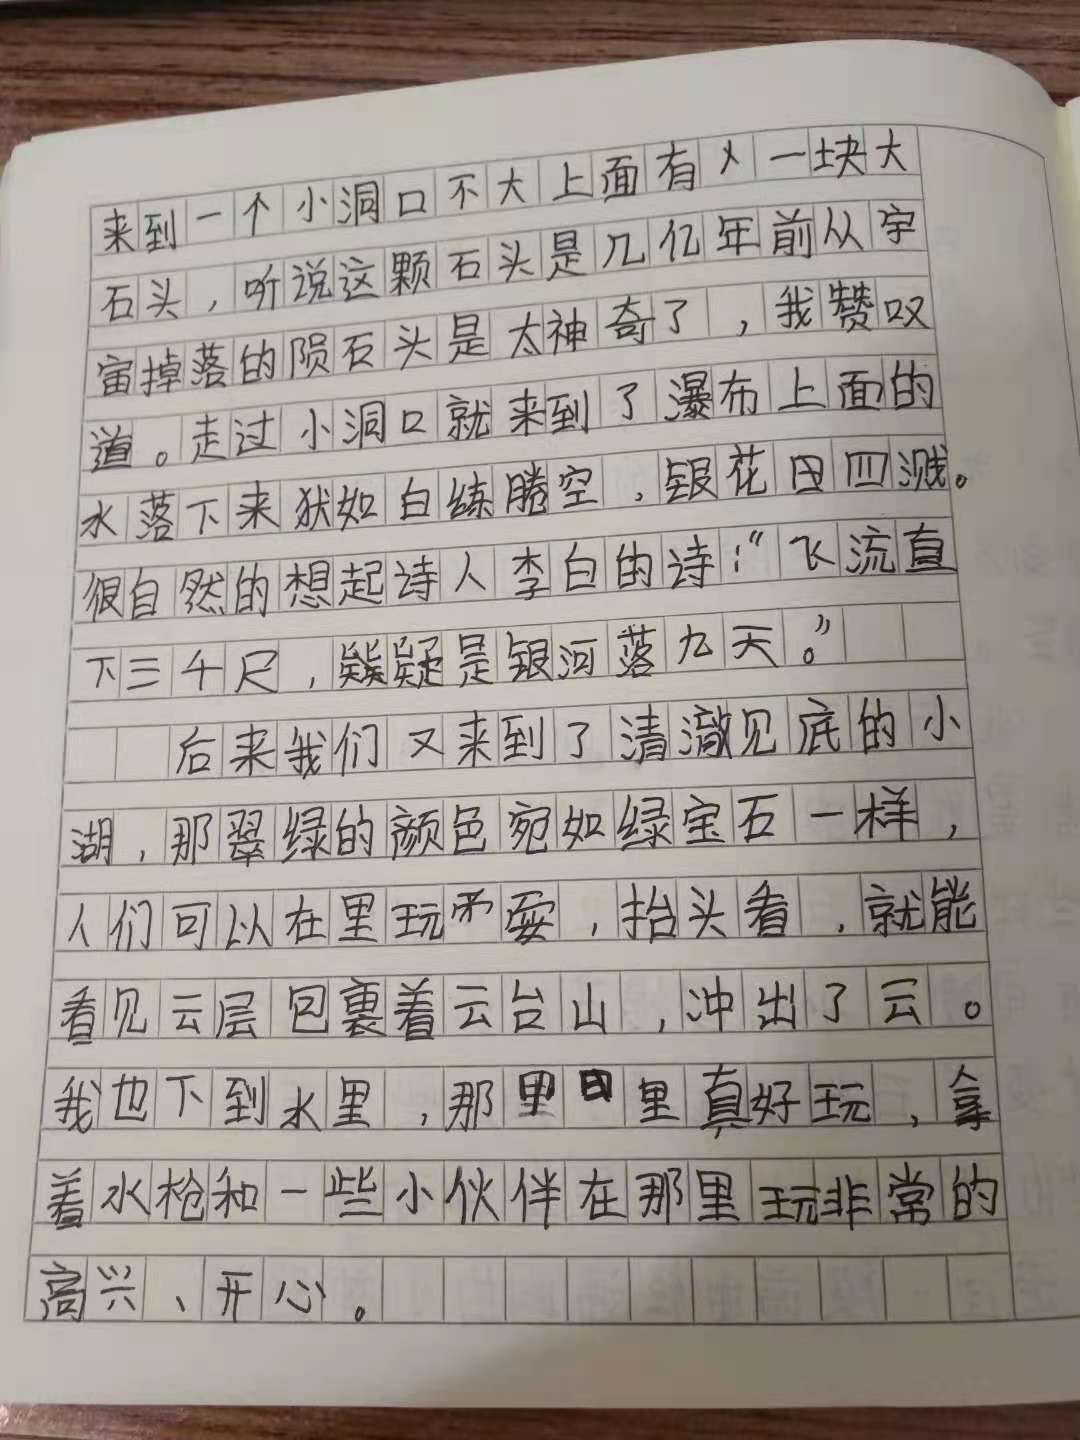 来到一个小洞口不大上面有一块大
石头，听说这颗石头是几亿年前从宇
宙掉落的陨石头是太神奇了，我赞叹
道。走过小洞口就来到了瀑布上面的
水落下来犹如白练腾空，银花四溅。
很自然的想起诗人李白的诗：“飞流直
下三千尺，疑是银河落九天。”
后来我们又来到了清澈见底的小
湖，那翠绿的颜色宛如绿宝石一样，
人们可以在里玩耍，抬头看，就能
看见云层包裹着云台山，冲出了云。
我也下到水里，那里真好玩，拿
着水枪和一些小伙伴在那里玩非常的
高兴、开心。